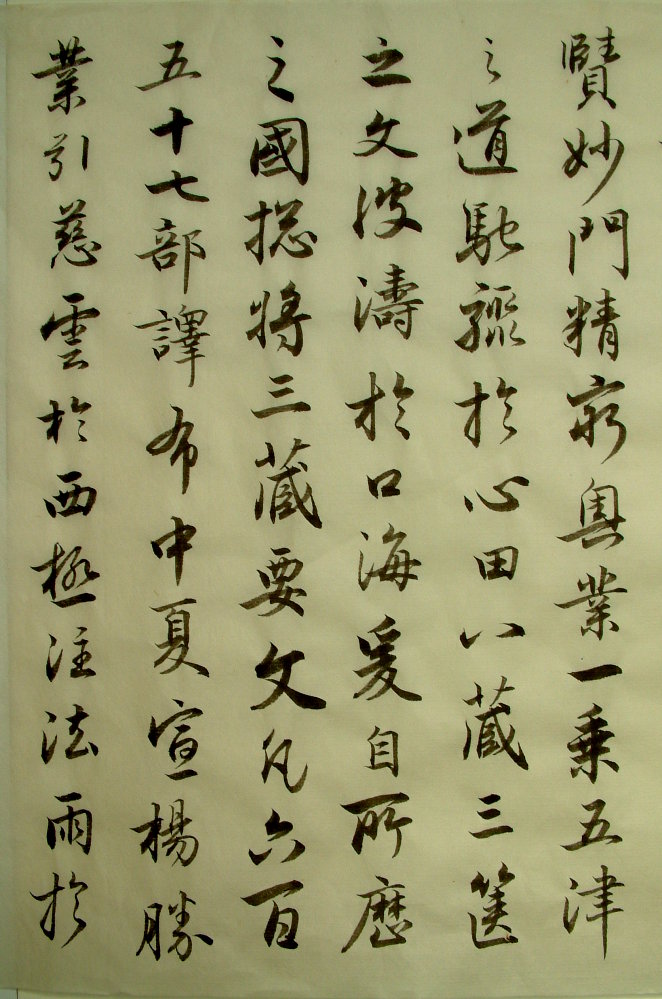 賢妙門精窮奧業一乗五津
之道馳驟於心田八藏三篋
之文波濤於口海爰自所歷
之國揔將三藏要文凡六百
五十七部譯布中夏宣楊勝
業引慈雲於西極注法雨於